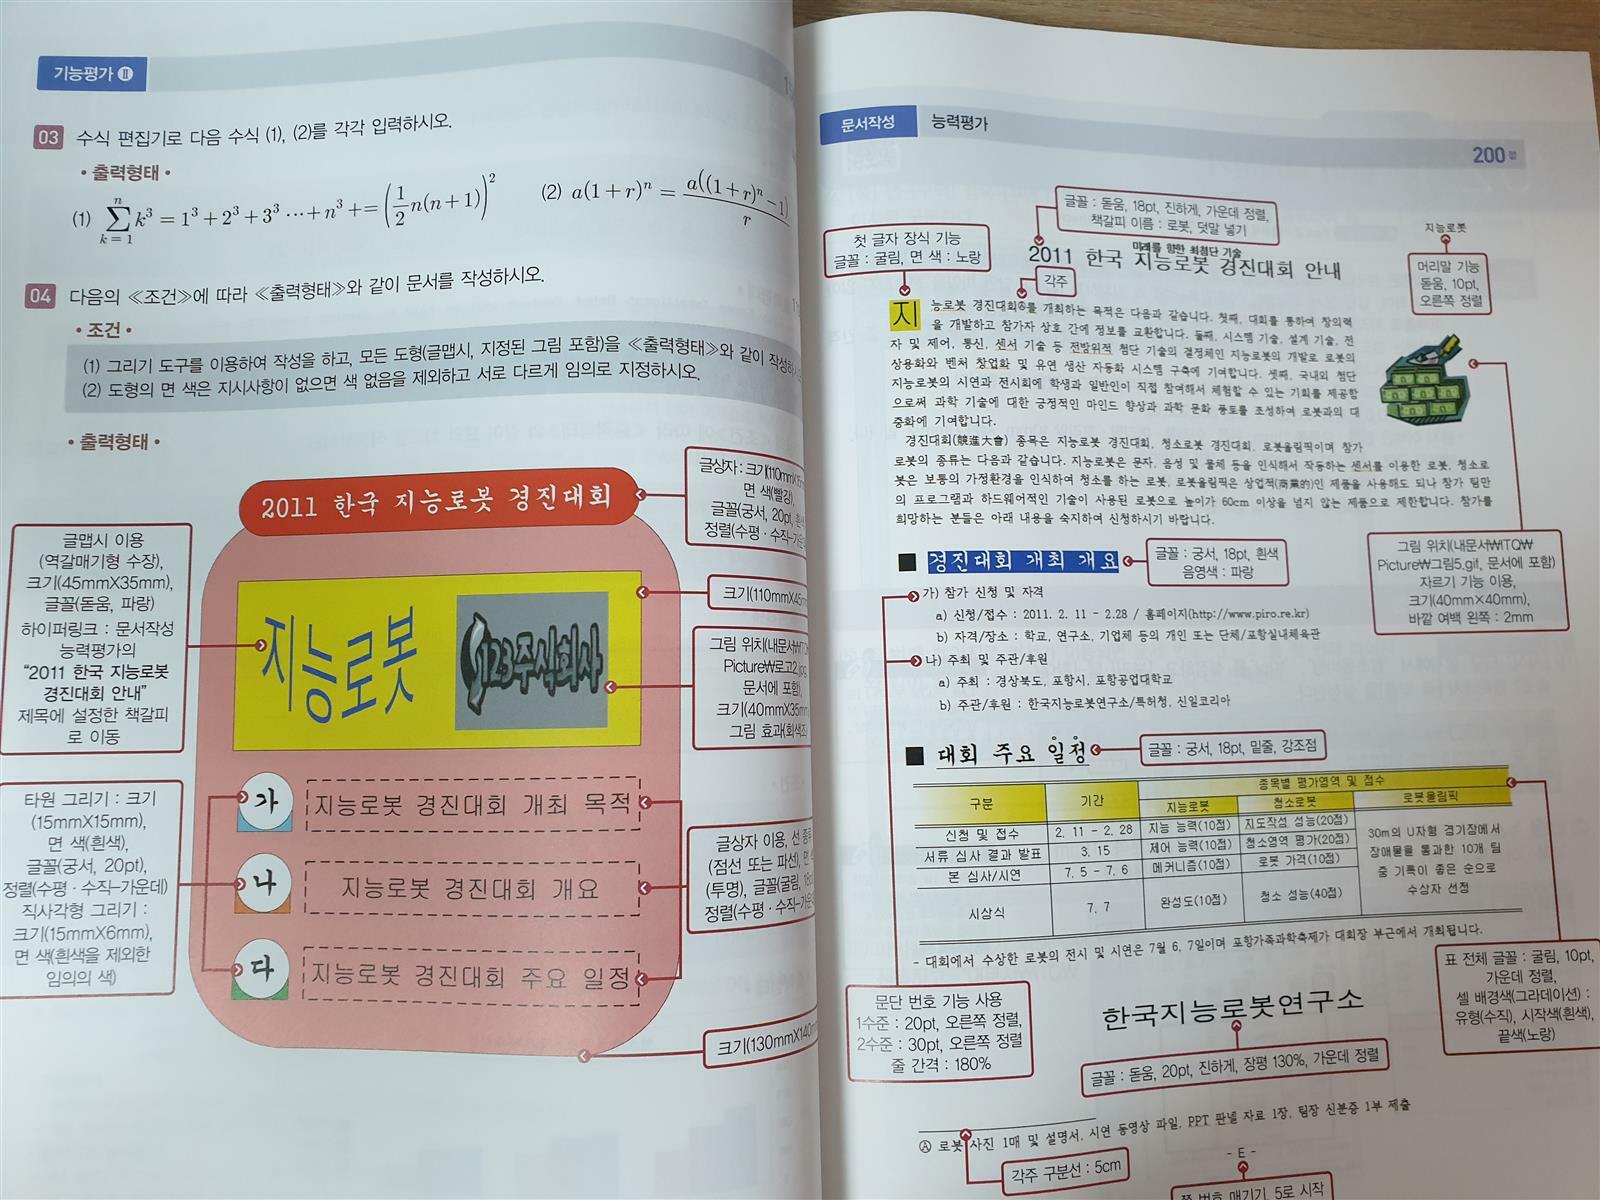 기능평가 Ⅱ
03 수식 편집기로 다음 수식 (1), (2)를 각각 입력하시오.
• 출력형태 •
(1) \sum_{k=1}^{n} k^3 = 1^3 + 2^3 + 3^3 \cdots + n^3 += \left(\frac{1}{2}n(n+1)\right)^2
(2) a(1+r)^n = \frac{a((1+r)^n - 1)}{r}
04 다음의 ≪조건≫에 따라 ≪출력형태≫와 같이 문서를 작성하시오.
• 조건 •
(1) 그리기 도구를 이용하여 작성을 하고, 모든 도형(글맵시, 지정된 그림 포함)을 ≪출력형태≫와 같이 작성하
(2) 도형의 면 색은 지시사항이 없으면 색 없음을 제외하고 서로 다르게 임의로 지정하시오.
• 출력형태 •
글상자 : 크기(110mmX
면 색(빨강),
글꼴(궁서, 20pt,
정렬(수평 · 수직-가운
2011 한국 지능로봇 경진대회
글맵시 이용
(역갈매기형 수장),
크기(45mmX35mm),
글꼴(돋움, 파랑)
하이퍼링크 : 문서작성
능력평가의
"2011 한국 지능로봇
경진대회 안내"
제목에 설정한 책갈피
로 이동
크기(110mmX45
지능로봇
123주식회사
그림 위치(내문서
Picture₩로고2.jpg,
문서에 포함),
크기(40mmX35mm
그림 효과(회색조
타원 그리기 : 크기
(15mmX15mm),
면 색(흰색),
글꼴(궁서, 20pt),
정렬(수평 · 수직-가운데)
직사각형 그리기 :
크기(15mmX6mm),
면 색(흰색을 제외한
임의의 색)
가 지능로봇 경진대회 개최 목적
나 지능로봇 경진대회 개요
다 지능로봇 경진대회 주요 일정
글상자 이용, 선 종류
(점선 또는 파선), 면
(투명), 글꼴(굴림,
정렬(수평 · 수직-가운
크기(130mmX140
문서작성 능력평가
200점
글꼴 : 돋움, 18pt, 진하게, 가운데 정렬,
책갈피 이름 : 로봇, 덧말 넣기
첫 글자 장식 기능
글꼴 : 굴림, 면 색 : 노랑
지능로봇
머리말 기능
돋움, 10pt,
오른쪽 정렬
미래를 향한 최첨단 기술
2011 한국 지능로봇 경진대회 안내
각주
지능로봇 경진대회Ⓐ를 개최하는 목적은 다음과 같습니다. 첫째, 대회를 통하여 창의력
을 개발하고 참가자 상호 간에 정보를 교환합니다. 둘째, 시스템 기술, 설계 기술, 전
자 및 제어, 통신, 센서 기술 등 전방위적 첨단 기술의 결정체인 지능로봇의 개발로 로봇의
상용화와 벤처 창업화 및 유연 생산 자동화 시스템 구축에 기여합니다. 셋째, 국내외 첨단
지능로봇의 시연과 전시회에 학생과 일반인이 직접 참여해서 체험할 수 있는 기회를 제공함
으로써 과학 기술에 대한 긍정적인 마인드 향상과 과학 문화 풍토를 조성하여 로봇과의 대
중화에 기여합니다.
경진대회(競進大會) 종목은 지능로봇 경진대회, 청소로봇 경진대회, 로봇올림픽이며 참가
로봇의 종류는 다음과 같습니다. 지능로봇은 문자, 음성 및 물체 등을 인식해서 작동하는 센서를 이용한 로봇, 청소로
봇은 보통의 가정환경을 인식하여 청소를 하는 로봇, 로봇올림픽은 상업적(商業的)인 제품을 사용해도 되나 참가 팀만
의 프로그램과 하드웨어적인 기술이 사용된 로봇으로 높이가 60cm 이상을 넘지 않는 제품으로 제한합니다. 참가를
희망하는 분들은 아래 내용을 숙지하여 신청하시기 바랍니다.
그림 위치(내문서₩ITQ₩
Picture₩그림5.gif, 문서에 포함)
자르기 기능 이용,
크기(40mm×40mm),
바깥 여백 왼쪽 : 2mm
■ 경진대회 개최 개요
글꼴 : 궁서, 18pt, 흰색
음영색 : 파랑
가) 참가 신청 및 자격
a) 신청/접수 : 2011. 2. 11 - 2.28 / 홈페이지(http://www.piro.re.kr)
b) 자격/장소 : 학교, 연구소, 기업체 등의 개인 또는 단체/포항실내체육관
나) 주최 및 주관/후원
a) 주최 : 경상북도, 포항시, 포항공업대학교
b) 주관/후원 : 한국지능로봇연구소/특허청, 신일코리아
■ 대회 주요 일정
글꼴 : 궁서, 18pt, 밑줄, 강조점
구분 기간 종목별 평가영역 및 접수
지능로봇 청소로봇 로봇올림픽
신청 및 접수 2. 11 - 2. 28 지능 능력(10점) 지도작성 성능(20점)
서류 심사 결과 발표 3. 15 제어 능력(10점) 청소영역 평가(20점)
본 심사/시연 7. 5 - 7. 6 메커니즘(10점) 로봇 가격(10점)
시상식 7. 7 완성도(10점) 청소 성능(40점)
30m의 U자형 경기장에서
장애물을 통과한 10개 팀
중 기록이 좋은 순으로
수상자 선정
- 대회에서 수상한 로봇의 전시 및 시연은 7월 6, 7일이며 포항가족과학축제가 대회장 부근에서 개최됩니다.
문단 번호 기능 사용
1수준 : 20pt, 오른쪽 정렬,
2수준 : 30pt, 오른쪽 정렬
줄 간격 : 180%
표 전체 글꼴 : 굴림, 10pt,
가운데 정렬,
셀 배경색(그라데이션) :
유형(수직), 시작색(흰색),
끝색(노랑)
한국지능로봇연구소
글꼴 : 돋움, 20pt, 진하게, 장평 130%, 가운데 정렬
Ⓐ 로봇 사진 1매 및 설명서, 시연 동영상 파일, PPT 판넬 자료 1장, 팀장 신분증 1부 제출
각주 구분선 : 5cm
- E -
쪽 번호 매기기, 5로 시작